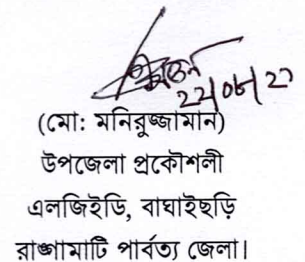 22/06/23
(মো: মনিরুজ্জামান)
উপজেলা প্রকৌশলী
এলজিইডি, বাঘাইছড়ি
রাঙ্গামাটি পার্বত্য জেলা।